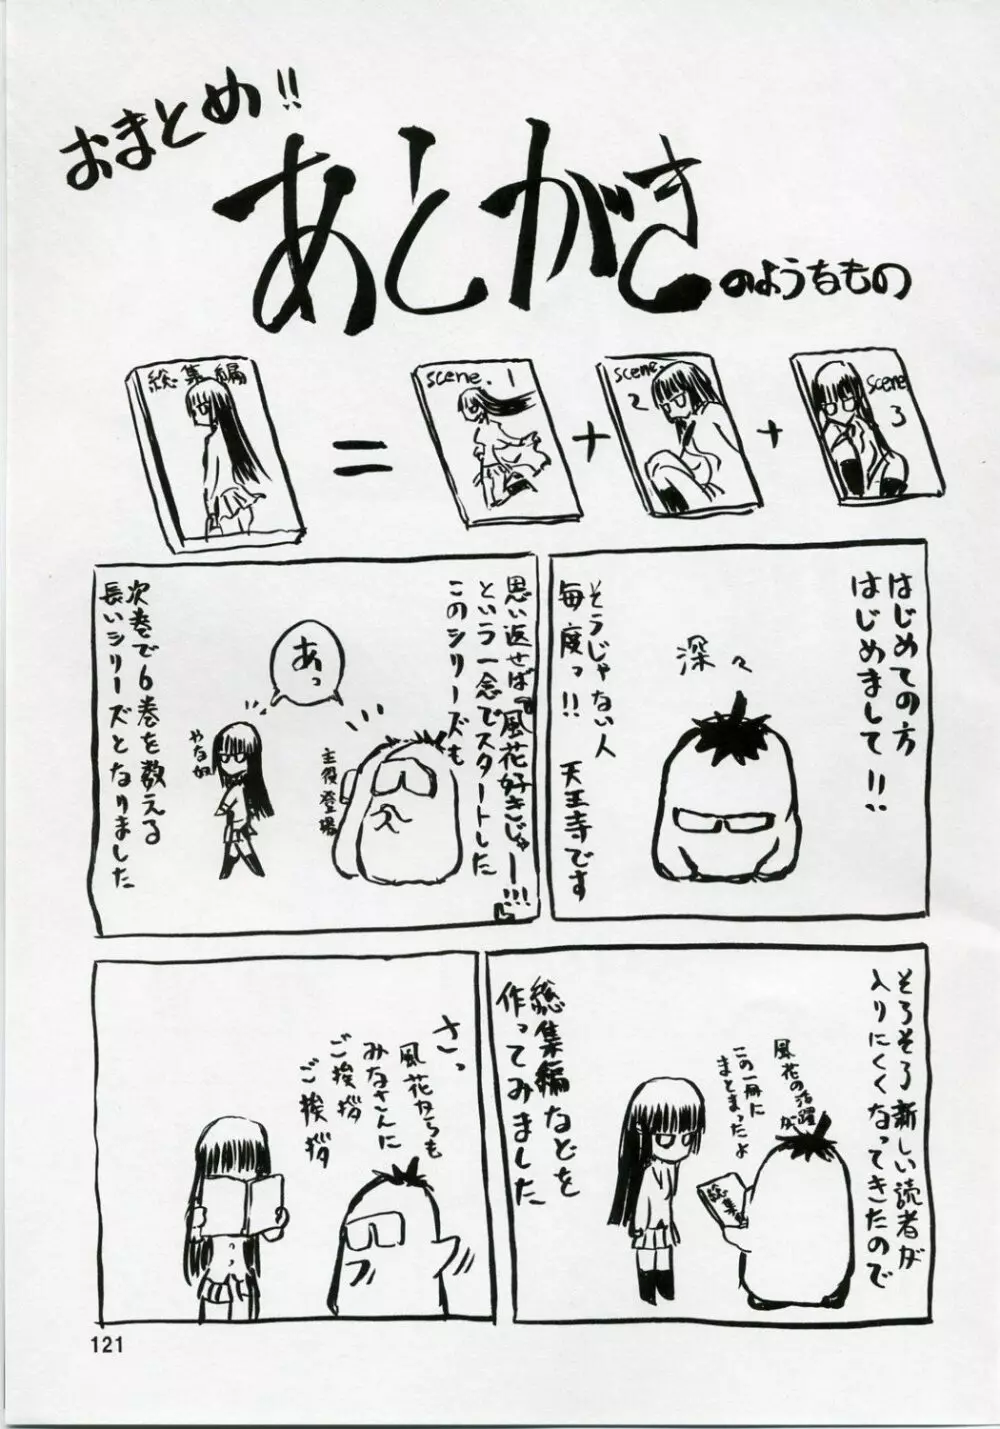 おまとめ!!
あとがき
のようなもの
総集編
=
scene. 1
+
scene. 2
+
scene 3
はじめての方
はじめまして!!
深々
そうじゃない人
毎度っ!!
天王寺です
思い返せば「風花好きじゃー!!!」
という一念でスタートした
このシリーズも
あっ
主役登場
次巻で6巻を数える
長いシリーズとなりました
そろそろ新しい読者が
入りにくくなってきたので
風花の活躍が
この一冊に
まとまったよ
総集編
総集編などを
作ってみました
さっ
風花からも
みなさんに
ご挨拶
ご挨拶
121